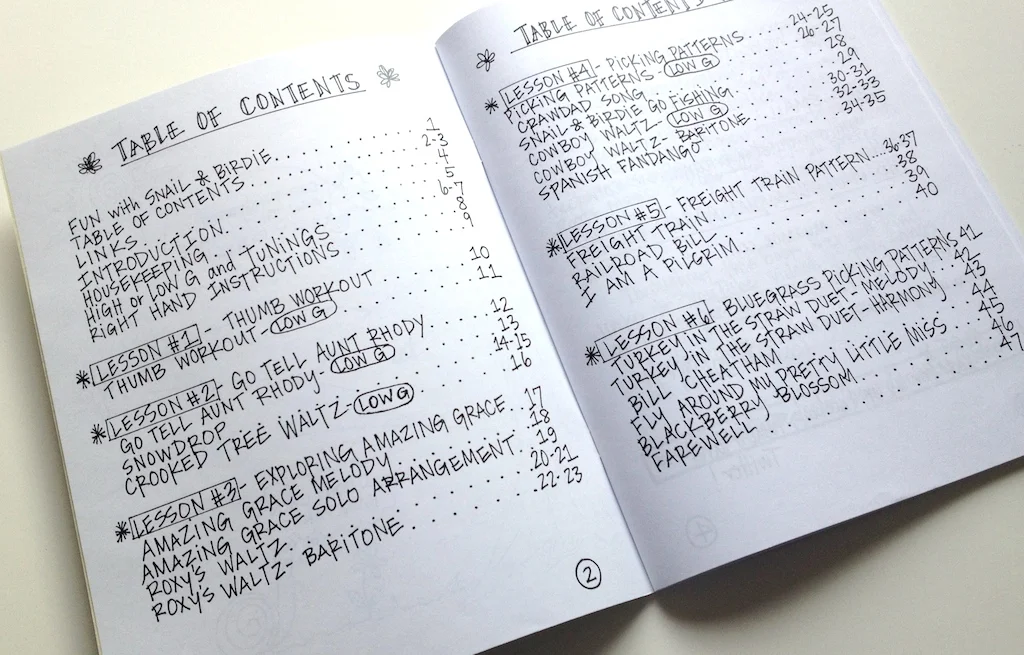 TABLE OF CONTENTS
FUN with SNAIL & BIRDIE. . . . . . . . 1
TABLE OF CONTENTS. . . . . . . . 2-3
LINKS . . . . . . . . 4
INTRODUCTION. . . . . . . . 5
HOUSEKEEPING . . . . . . . . 6-7
HIGH or LOW G and TUNINGS 8
RIGHT HAND INSTRUCTIONS 9
*LESSON #1 - THUMB WORKOUT 10
THUMB WORKOUT - LOW G 11
*LESSON #2 - GO TELL AUNT RHODY 12
GO TELL AUNT RHODY - LOW G 13
SNOWDROP . . . . . . . . 14-15
CROOKED TREE WALTZ - LOW G . . . . 16
*LESSON #3 - EXPLORING AMAZING GRACE . . 17
AMAZING GRACE MELODY . . . . . 18
AMAZING GRACE SOLO ARRANGEMENT. . 19
ROXY'S WALTZ . . . . . . . . 20-21
ROXY'S WALTZ - BARITONE . . . . . . . 22-23
2
TABLE OF CONTENTS
*LESSON #4 - PICKING PATTERNS . . . . . 24-25
PICKING PATTERNS - LOW G . . . . 26-27
CRAWDAD SONG . . . . . . . . 28
SNAIL & BIRDIE GO FISHING . . . . . 29
COWBOY WALTZ - LOW G . . . . . 30-31
COWBOY WALTZ - BARITONE . . . . . 32-33
SPANISH FANDANGO . . . . . . . . 34-35
*LESSON #5 - FREIGHT TRAIN PATTERN. . . 36-37
FREIGHT TRAIN . . . . . . . . 38
RAILROAD BILL . . . . . . . . 39
I AM A PILGRIM. . . . . . . . 40
*LESSON #6 - BLUEGRASS PICKING PATTERNS 41
TURKEY IN THE STRAW DUET - MELODY. . . 42
TURKEY IN THE STRAW DUET - HARMONY 43
BILL CHEATHAM . . . . . . . . 44
FLY AROUND MY PRETTY LITTLE MISS . . . 45
BLACKBERRY BLOSSOM . . . . . . . . 46
FAREWELL . . . . . . . . 47